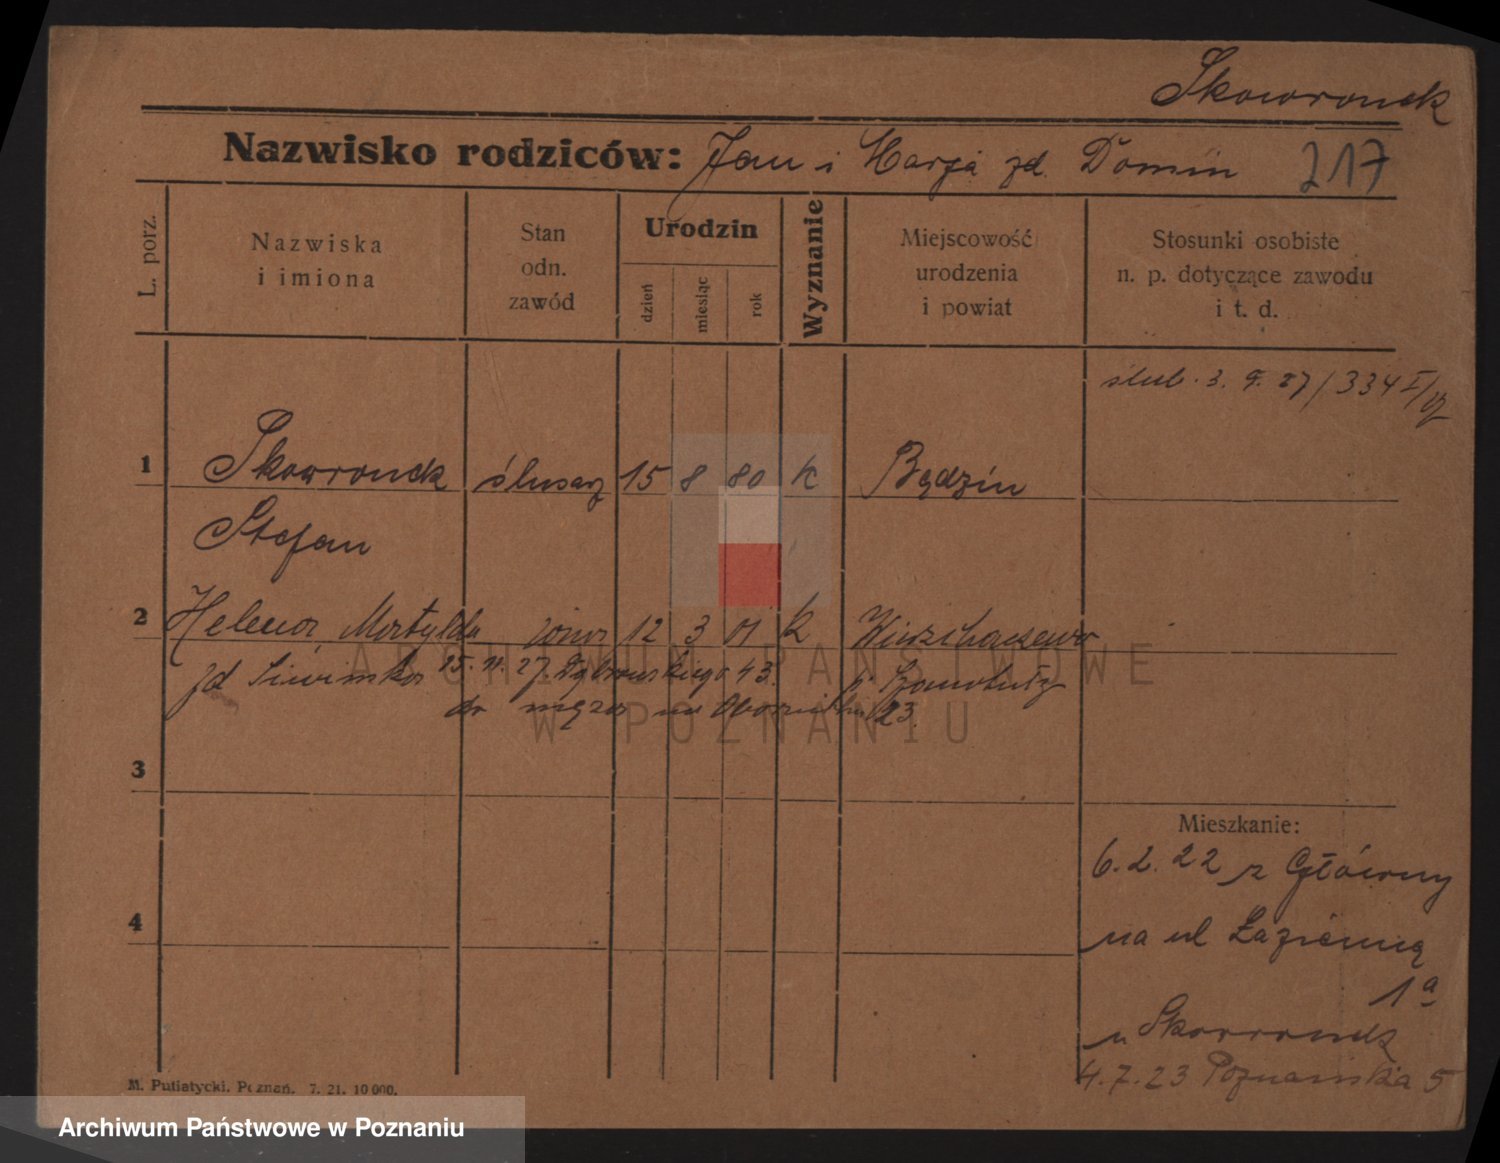 Skowronek
Nazwisko rodziców: Jan i Marja zd. Domin 217
L. porz.
Nazwiska i imiona
Stan odn. zawód
Urodzin
dzień miesiąc rok
Wyznanie
Miejscowość urodzenia i powiat
Stosunki osobiste n. p. dotyczące zawodu i t. d.
ślub. 3. 9. 27/334 I/27
1 Skowronek ślusarz 15 8 80 k Będzin
Stefan
2 Helena Matylda żona 12 3 01 k
zd 25. 11. 27. Dąbrowskiego 43. p. Szamotuły
do męża na 23.
3
Mieszkanie:
6. 2. 22 z Główny
4
na ul Łazienną
1a
u Skowronek
4. 7. 23 Poznańska 5
M. Putiatycki. Poznań. 7. 21. 10 000.
ARCHIWUM PAŃSTWOWE
W POZNANIU
Archiwum Państwowe w Poznaniu